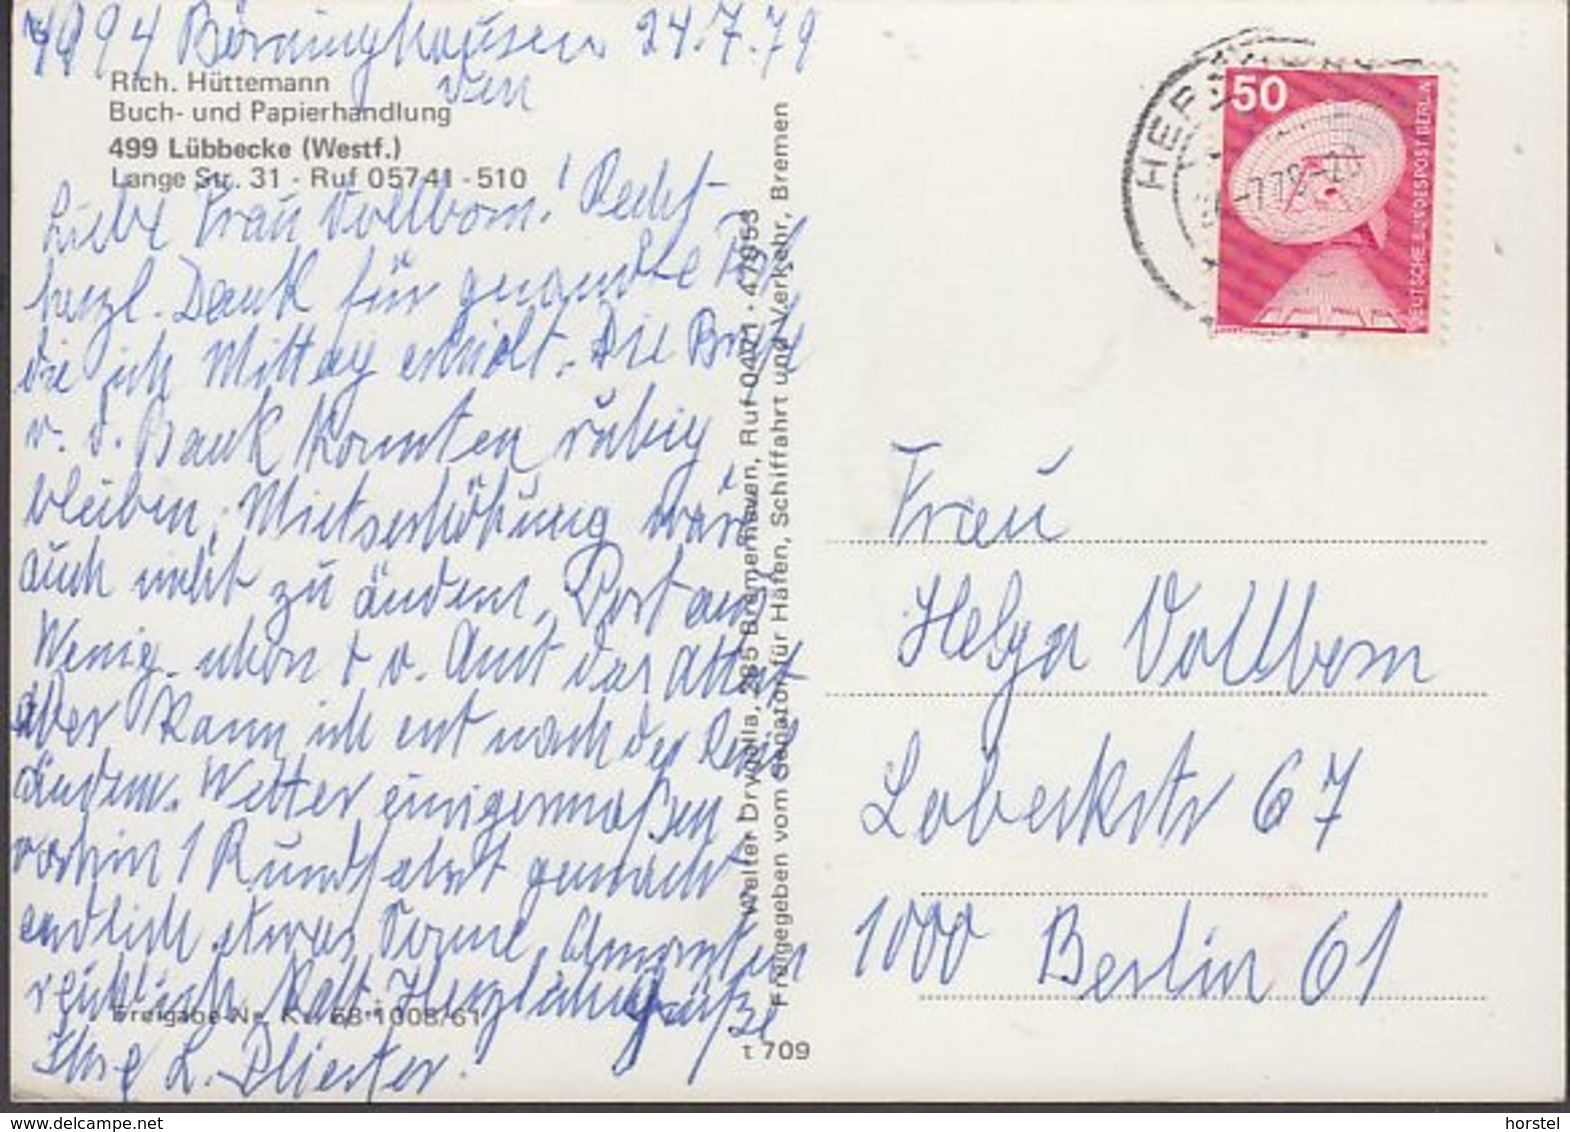 Börninghausen
den 24.7.79
Rich. Hüttemann
Buch- und Papierhandlung
499 Lübbecke (Westf.)
Lange Str. 31 - Ruf 05741 - 510
Liebe Frau Vollbom! Recht
herzl. Dank für gesandte Post
die ich Mittag erhielt. Die Briefe
v. d. Bank konnten ruhig
bleiben, Mietserhöhung wär
auch nicht zu ändern, Post
Wenig. v. Amt das
aber kann ich erst nach der Reise
ändern. Wetter einigermaßen
vorhin 1 Rundfahrt gemacht
endlich etwas Sonne,
reichlich kalt. Herzliche Grüße
Ihre L.
Freigabe-Nr. 68.1008/61
Walter Drygalla, 285 Bremerhaven, Ruf 0471 · 47053
Freigegeben vom Senator für Häfen, Schiffahrt und Verkehr, Bremen
τ 709
50
DEUTSCHE BUNDESPOST BERLIN
Frau
Helga Vollbom
Lobeckstr 67
1000 Berlin 61
www.delcampe.net
horstel